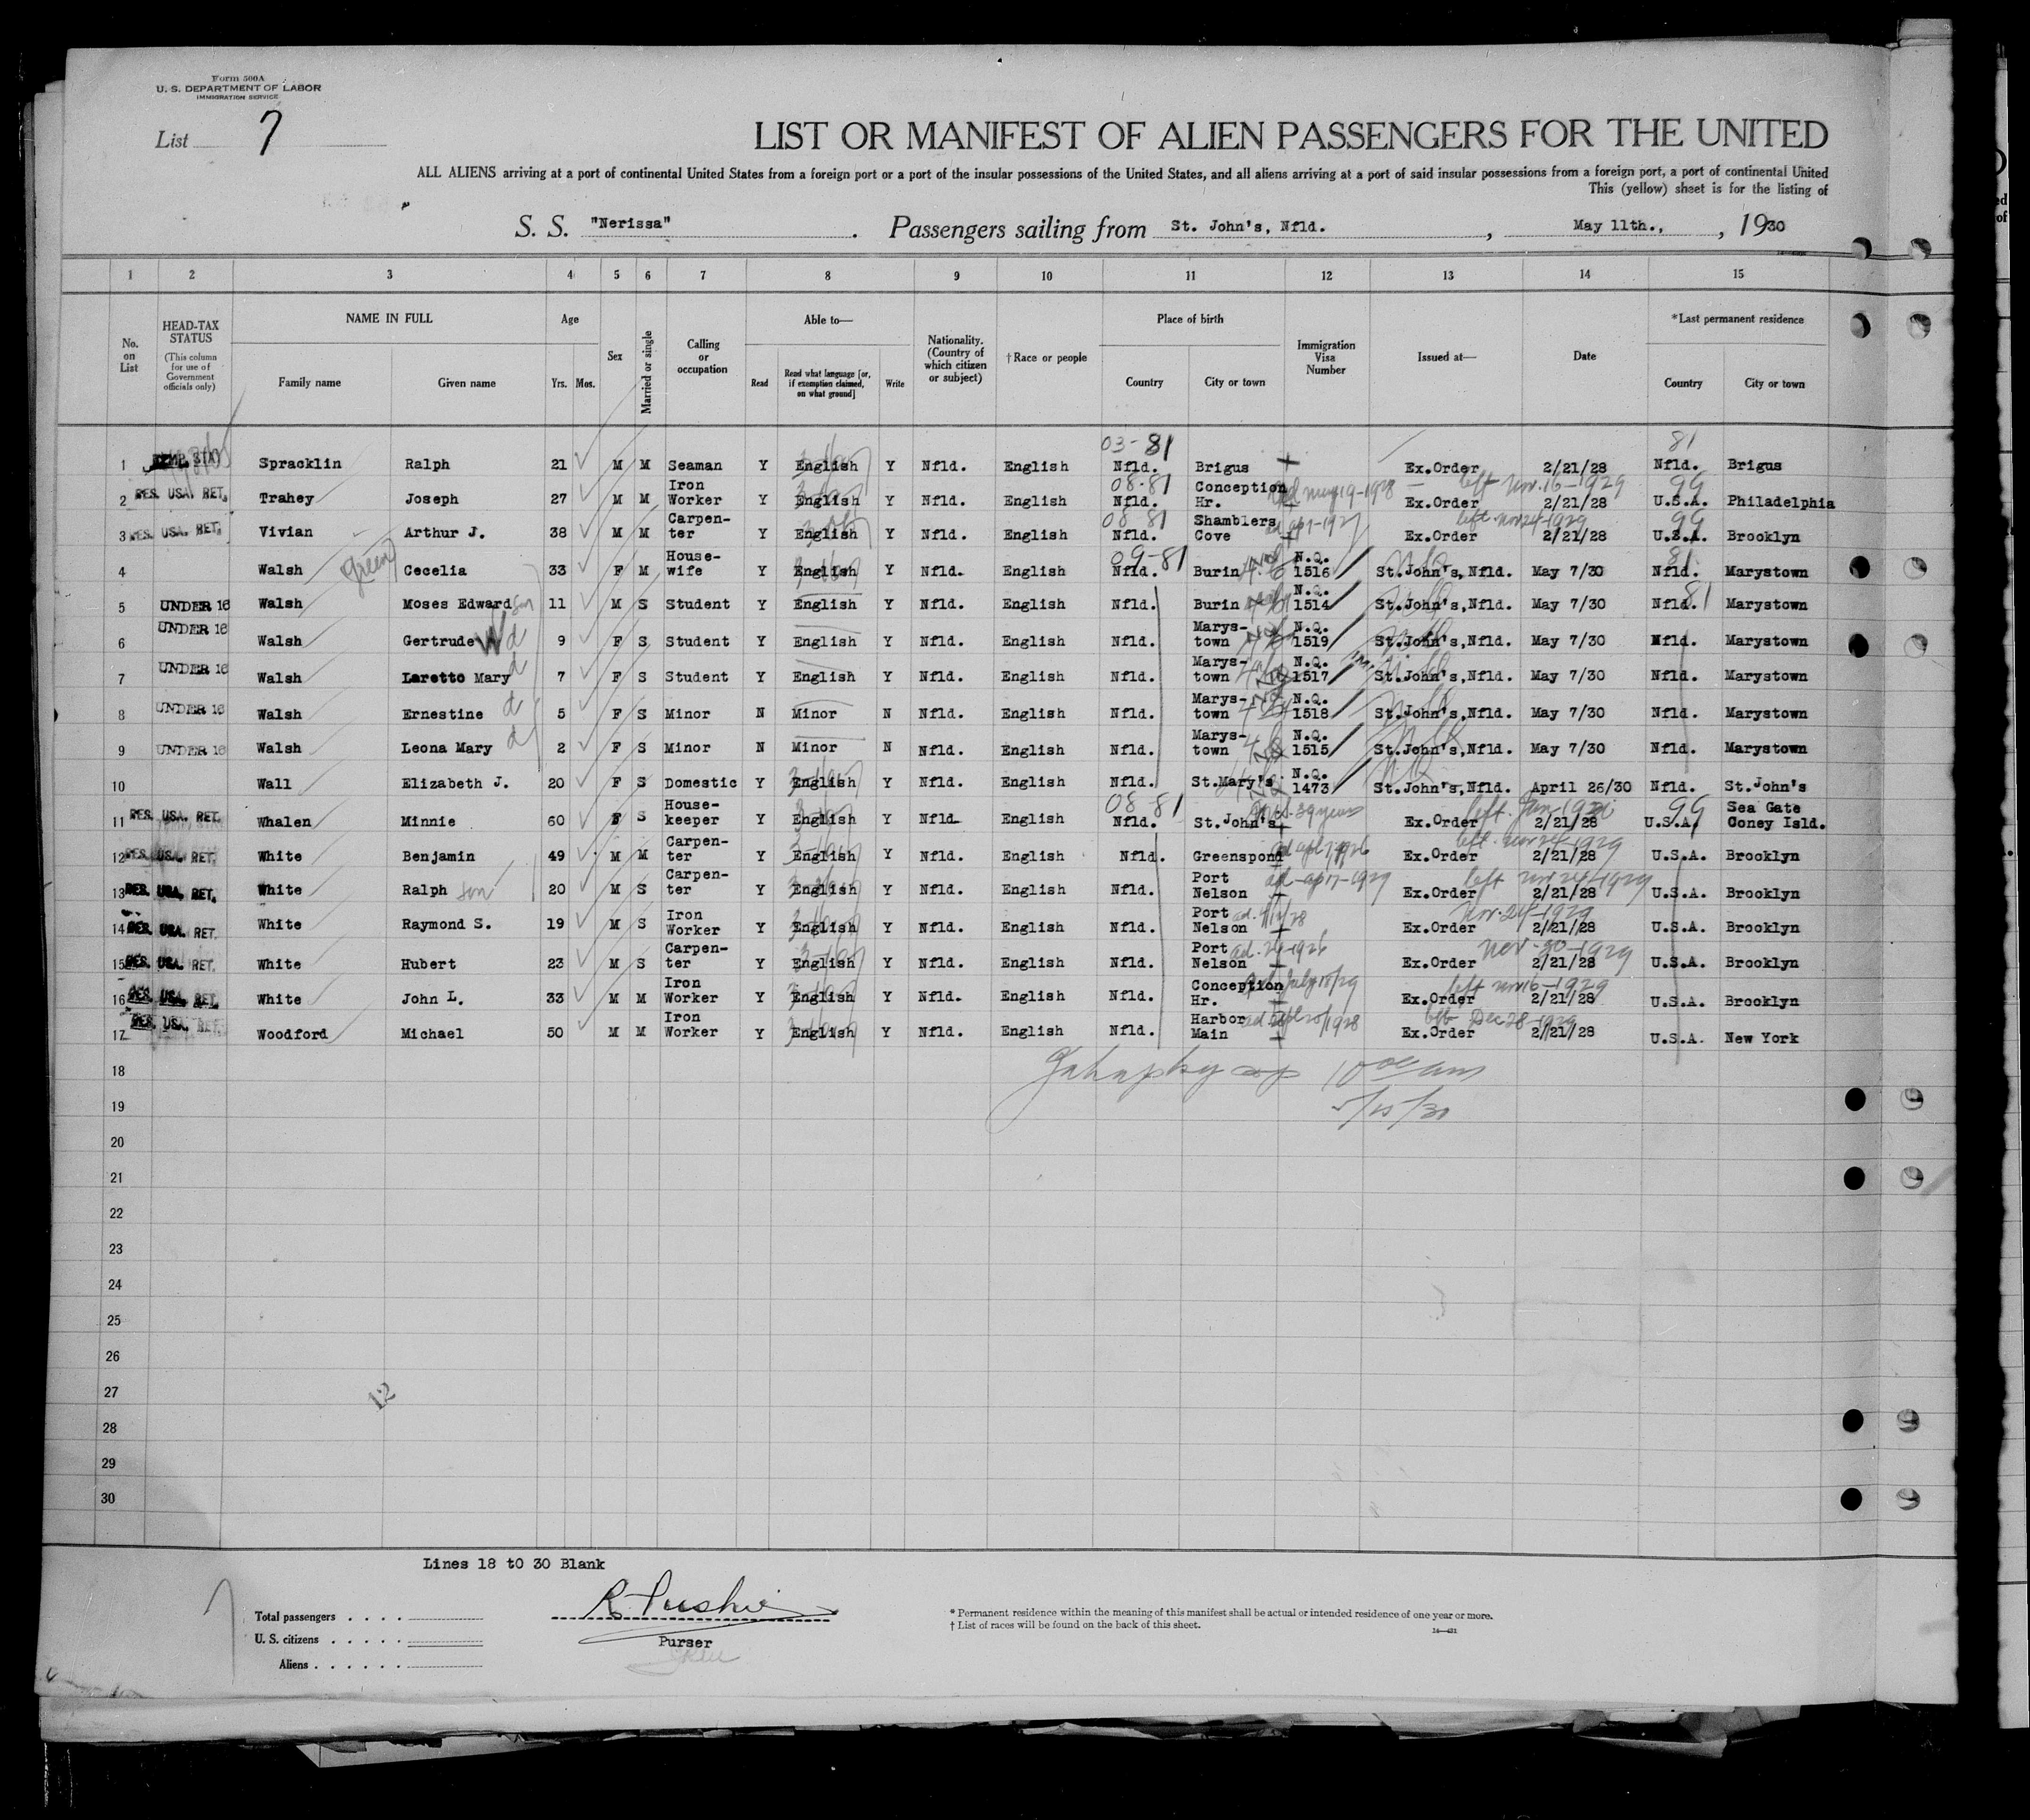 Form 500A
U. S. DEPARTMENT OF LABOR
IMMIGRATION SERVICE
List 7
LIST OR MANIFEST OF ALIEN PASSENGERS FOR THE UNITED
ALL ALIENS arriving at a port of continental United States from a foreign port or a port of the insular possessions of the United States, and all aliens arriving at a port of said insular possessions from a foreign port, a port of continental United
This (yellow) sheet is for the listing of
S. S. "Nerissa". Passengers sailing from St. John's, Nfld., May 11th., , 1930
1 2 3 4 5 6 7 8 9 10 11 12 13 14 15
No. on List
HEAD-TAX STATUS (This column for use of Government officials only)
NAME IN FULL Family name Given name
Age Yrs. Mos.
Sex
Married or single
Calling or occupation
Able to— Read Read what language [or, if exemption claimed, on what ground] Write
Nationality. (Country of which citizen or subject)
† Race or people
Place of birth Country City or town
Immigration Visa Number
Issued at—
Date
*Last permanent residence Country City or town
03-81 81
1 Spracklin Ralph 21 M M Seaman Y English Y Nfld. English Nfld. Brigus Ex.Order 2/21/28 Nfld. Brigus
08-81 left Nov. 16-1929 99
2 RES. USA. RET. Trahey Joseph 27 M M Iron Worker Y English Y Nfld. English Nfld. Conception Hr. Ex.Order 2/21/28 U.S.A. Philadelphia
08 81 left Nov 24-1929 99
3 RES. USA. RET. Vivian Arthur J. 38 M M Carpen-ter Y English Y Nfld. English Nfld. Shamblers Cove Ex.Order 2/21/28 U.S.A. Brooklyn
09-81 81
4 Walsh green Cecelia 33 F M House-wife Y English Y Nfld. English Nfld. Burin N.Q. 1516 St.John's,Nfld. May 7/30 Nfld. Marystown
5 UNDER 16 Walsh Moses Edward son 11 M S Student Y English Y Nfld. English Nfld. Burin N.Q. 1514 St.John's,Nfld. May 7/30 Nfld. 81 Marystown
6 UNDER 16 Walsh Gertrude W d 9 F S Student Y English Y Nfld. English Nfld. Marys-town N.Q. 1519 St.John's,Nfld. May 7/30 Nfld. Marystown
7 UNDER 16 Walsh Laretto Mary d 7 F S Student Y English Y Nfld. English Nfld. Marys-town N.Q. 1517 St.John's,Nfld. May 7/30 Nfld. Marystown
8 UNDER 16 Walsh Ernestine d 5 F S Minor N Minor N Nfld. English Nfld. Marys-town N.Q. 1518 St.John's,Nfld. May 7/30 Nfld. Marystown
9 UNDER 16 Walsh Leona Mary d 2 F S Minor N Minor N Nfld. English Nfld. Marys-town N.Q. 1515 St.John's,Nfld. May 7/30 Nfld. Marystown
10 Wall Elizabeth J. 20 F S Domestic Y English Y Nfld. English Nfld. St.Mary's N.Q. 1473 St.John's,Nfld. April 26/30 Nfld. St.John's
08-81 99
11 RES. USA. RET. Whalen Minnie 60 F S House-keeper Y English Y Nfld. English Nfld. St.John's Ex.Order 2/21/28 U.S.A. Sea Gate Coney Isld.
12 RES. USA. RET. White Benjamin 49 M M Carpen-ter Y English Y Nfld. English Nfld. Greenspond Ex.Order left Nov 24-1929 2/21/28 U.S.A. Brooklyn
13 RES. USA. RET. White Ralph son 20 M S Carpen-ter Y English Y Nfld. English Nfld. Port Nelson Ex.Order left Nov 24-1929 2/21/28 U.S.A. Brooklyn
14 RES. USA. RET. White Raymond S. 19 M S Iron Worker Y English Y Nfld. English Nfld. Port Nelson Ex.Order Nov. 24-1929 2/21/28 U.S.A. Brooklyn
15 RES. USA. RET. White Hubert 23 M S Carpen-ter Y English Y Nfld. English Nfld. Port Nelson Ex.Order Nov. 30-1929 2/21/28 U.S.A. Brooklyn
16 RES. USA. RET. White John L. 33 M M Iron Worker Y English Y Nfld. English Nfld. Conception Hr. July 18/29 Ex.Order left Nov 16-1929 2/21/28 U.S.A. Brooklyn
17 RES. USA. RET. Woodford Michael 50 M M Iron Worker Y English Y Nfld. English Nfld. Harbor Main Ex.Order Dec 28-1929 2/21/28 U.S.A. New York
18 10 00 am
19 5/15/30
20
21
22
23
24
25
26
27 12
28
29
30
Lines 18 to 30 Blank
Total passengers . . . .
U. S. citizens . . . . .
Aliens . . . . . .
Purser
* Permanent residence within the meaning of this manifest shall be actual or intended residence of one year or more.
† List of races will be found on the back of this sheet.